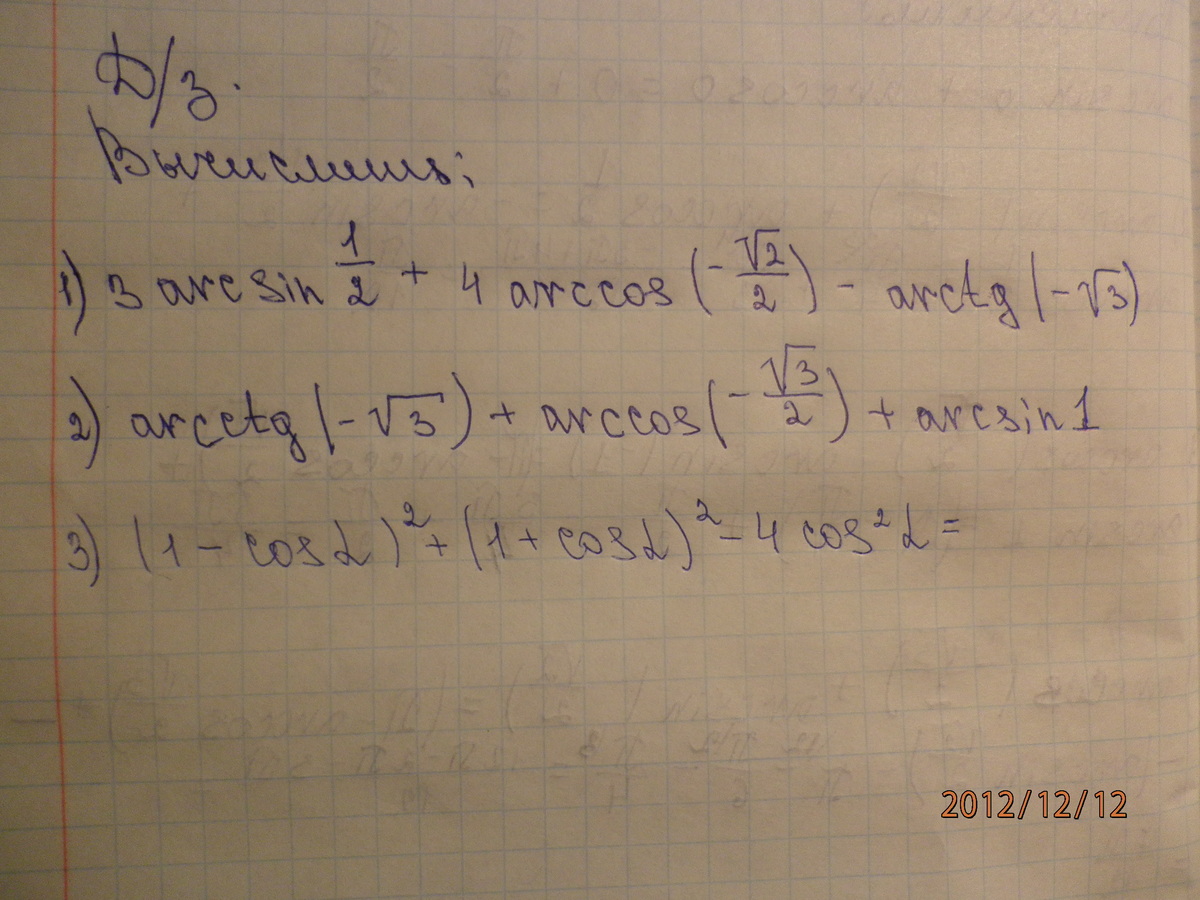 Д/з.
Вычислить:
1) 3 arcsin 1/2 + 4 arccos (-√2/2) - arctg (-√3)
2) arcctg (-√3) + arccos (-√3/2) + arcsin 1
3) (1 - cos α)² + (1 + cos α)² - 4 cos² α =
2012/12/12